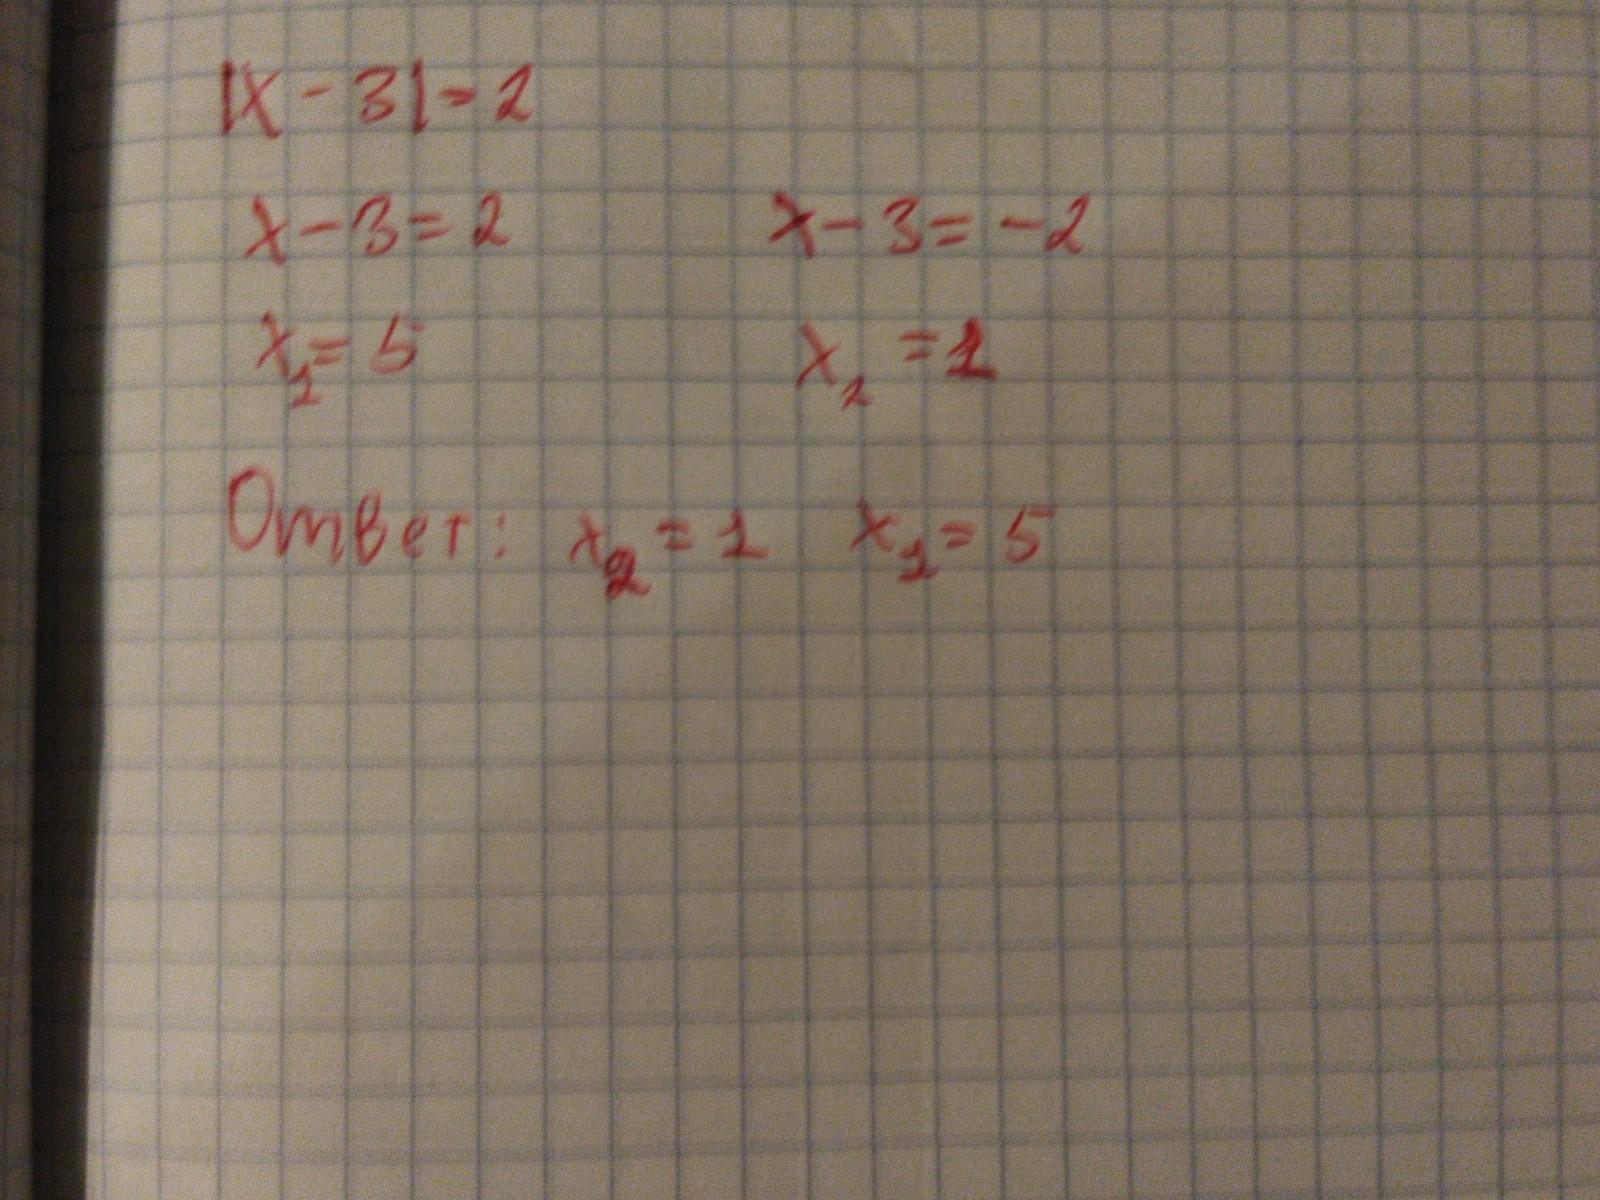 |x - 3| = 2
x - 3 = 2 x - 3 = -2
x₁ = 5 x₂ = 1
Ответ: x₂ = 1 x₁ = 5